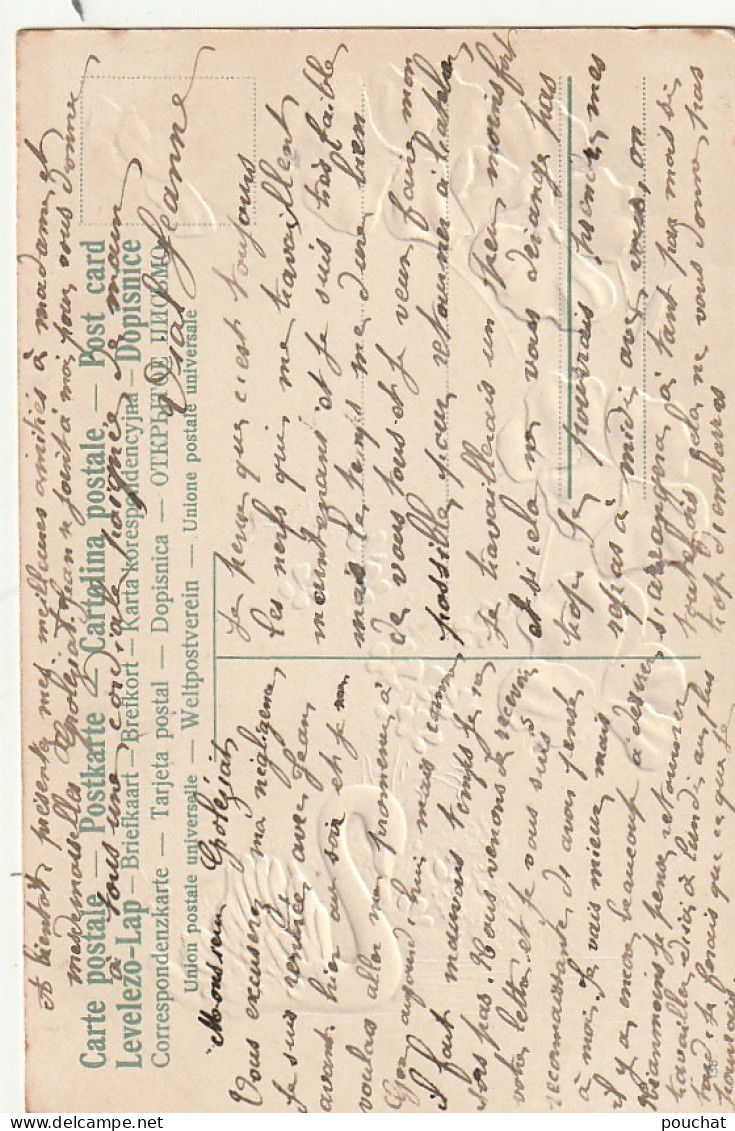 A bientôt présentez mes meilleures amitiés à madame et
mesdemoiselles Golejat Jean se joint à moi pour vous donner
à tous une cordiale poignée de main
Jeanne
Carte postale — Postkarte — Cartolina postale — Post card
Levelezö-Lap — Briefkaart — Brefkort — Karta korespondencyjna — Dopisnice
Correspondenzkarte — Tarjeta postal — Dopisnica — ОТКРЫТОЕ ПИСЬМО
Union postale universelle — Weltpostverein — Unione postale universale
Monsieur Golejat
Vous excuserez ma négligence
Je suis rentrée avec Jean
avant hier au soir et je
voulais aller me promener à
aujourd'hui mais comme
il fait mauvais temps je
sors pas. Nous venons de recevoir
votre lettre et je vous suis
reconnaissante d'avoir pensé
à moi. Je vais mieux mais
il y a encore beaucoup à désirer
Néanmoins je pense retourner
travailler d'ici à lundi au plus
tard. Je ferais que ce que je
pourrais.
Je pense que c'est toujours
les nerfs qui me travaillent
maintenant et je suis très faible
mais le temps me dure bien
de vous tous et je veux faire mon
possible pour retourner à l'atelier
Je travaillerais un peu moins fort
et si cela ne vous dérange pas
trop je pourrais prendre mes
repas à midi avec vous, on
s'arrangera à tant par mois si
toutefois cela ne vous donne pas
trop d'embarras
pouchat